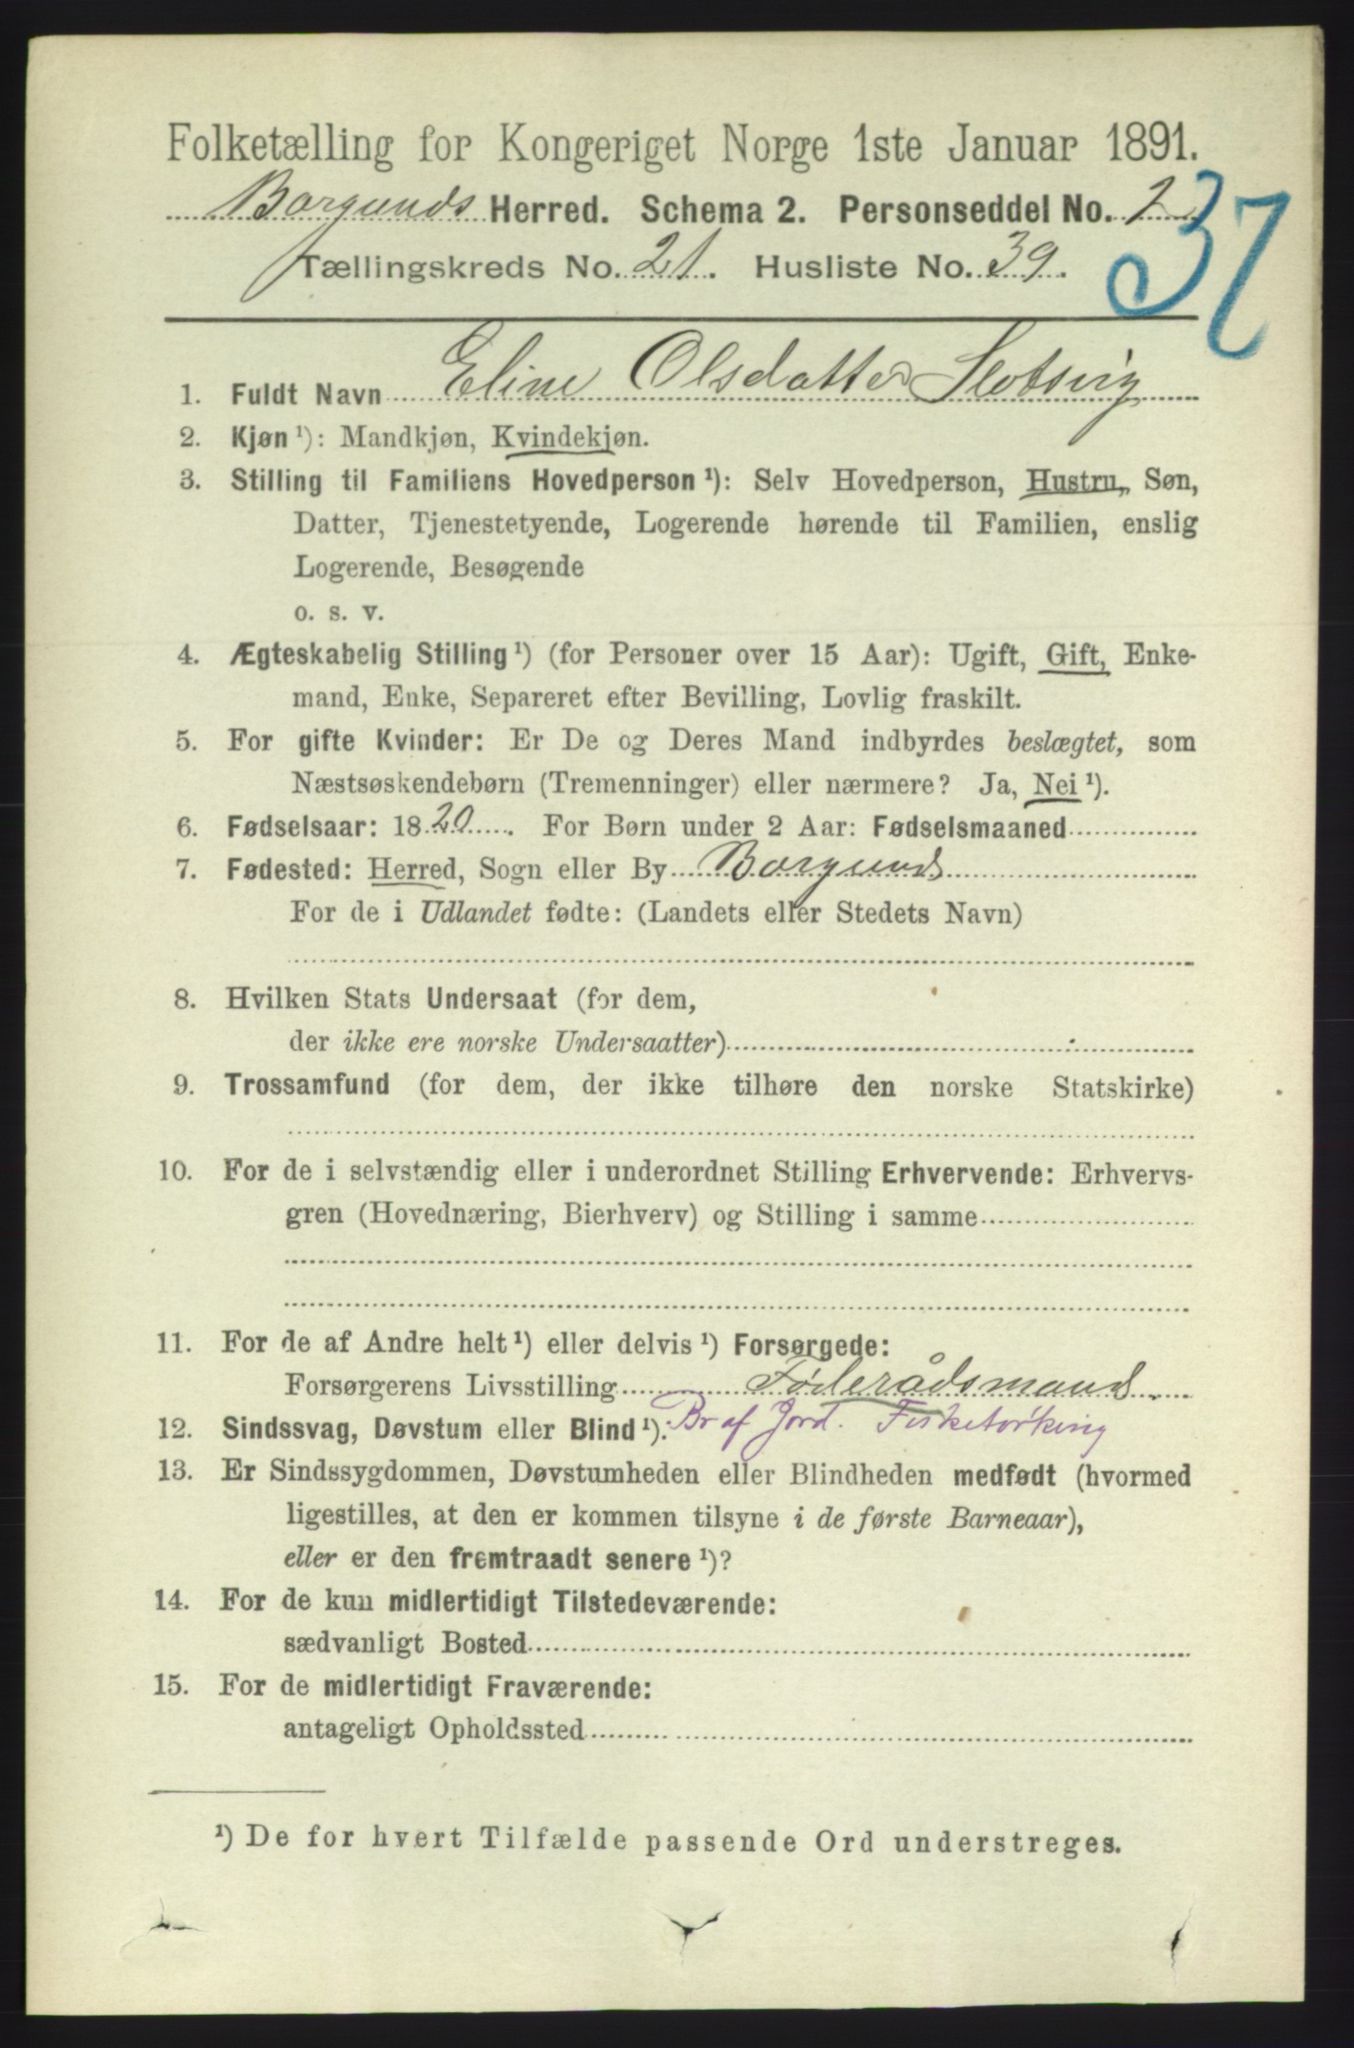 Folketælling for Kongeriget Norge 1ste Januar 1891.
Borgunds Herred. Schema 2. Personseddel No. 2
37
Tællingskreds No. 21. Husliste No. 39.
1. Fuldt Navn Eline Olsdatter Slotsvig
2. Kjøn ¹): Mandkjøn, Kvindekjøn.
3. Stilling til Familiens Hovedperson ¹): Selv Hovedperson, Hustru, Søn,
Datter, Tjenestetyende, Logerende hørende til Familien, enslig
Logerende, Besøgende
o. s. v.
4. Ægteskabelig Stilling ¹) (for Personer over 15 Aar): Ugift, Gift, Enke-
mand, Enke, Separeret efter Bevilling, Lovlig fraskilt.
5. For gifte Kvinder: Er De og Deres Mand indbyrdes beslægtet, som
Næstsøskendebørn (Tremenninger) eller nærmere? Ja, Nei ¹).
6. Fødselsaar: 1820. For Børn under 2 Aar: Fødselsmaaned
7. Fødested: Herred, Sogn eller By Borgunds
For de i Udlandet fødte: (Landets eller Stedets Navn)
8. Hvilken Stats Undersaat (for dem,
der ikke ere norske Undersaatter)
9. Trossamfund (for dem, der ikke tilhøre den norske Statskirke)
10. For de i selvstændig eller i underordnet Stilling Erhvervende: Erhvervs-
gren (Hovednæring, Bierhverv) og Stilling i samme
11. For de af Andre helt ¹) eller delvis ¹) Forsørgede:
Forsørgerens Livsstilling Föderådsmand.
12. Sindssvag, Døvstum eller Blind ¹). Br af Jord. Fisketörking
13. Er Sindssygdommen, Døvstumheden eller Blindheden medfødt (hvormed
ligestilles, at den er kommen tilsyne i de første Barneaar),
eller er den fremtraadt senere ¹)?
14. For de kun midlertidigt Tilstedeværende:
sædvanligt Bosted
15. For de midlertidigt Fraværende:
antageligt Opholdssted
¹) De for hvert Tilfælde passende Ord understreges.